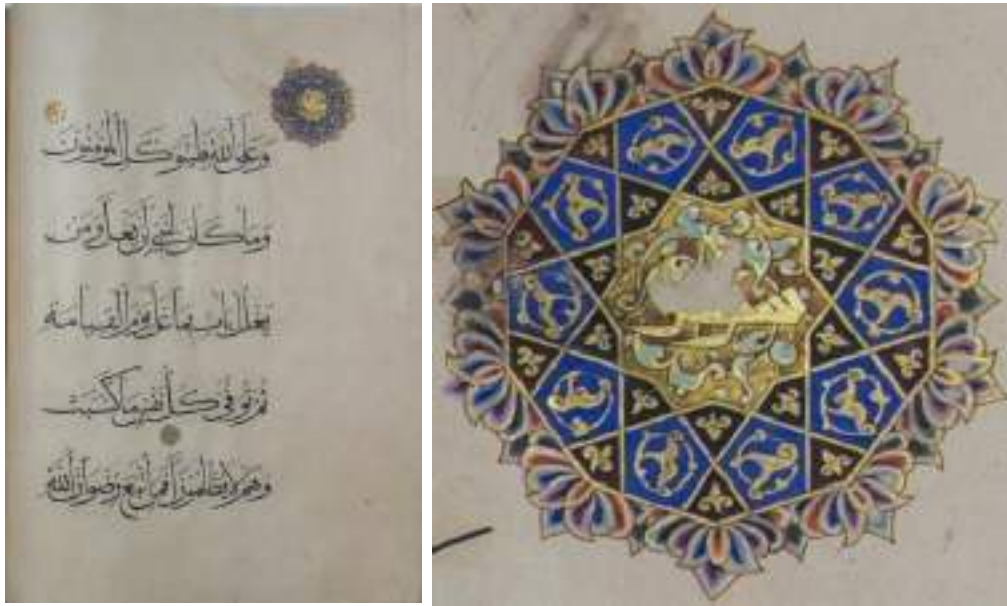 وعلى الله فليتوكل المؤمنون
وما كان لنبي أن يغل ومن
يغلل يأت بما غل يوم القيامة
ثم توفى كل نفس ما كسبت
وهم لا يظلمون أفمن اتبع رضوان الله